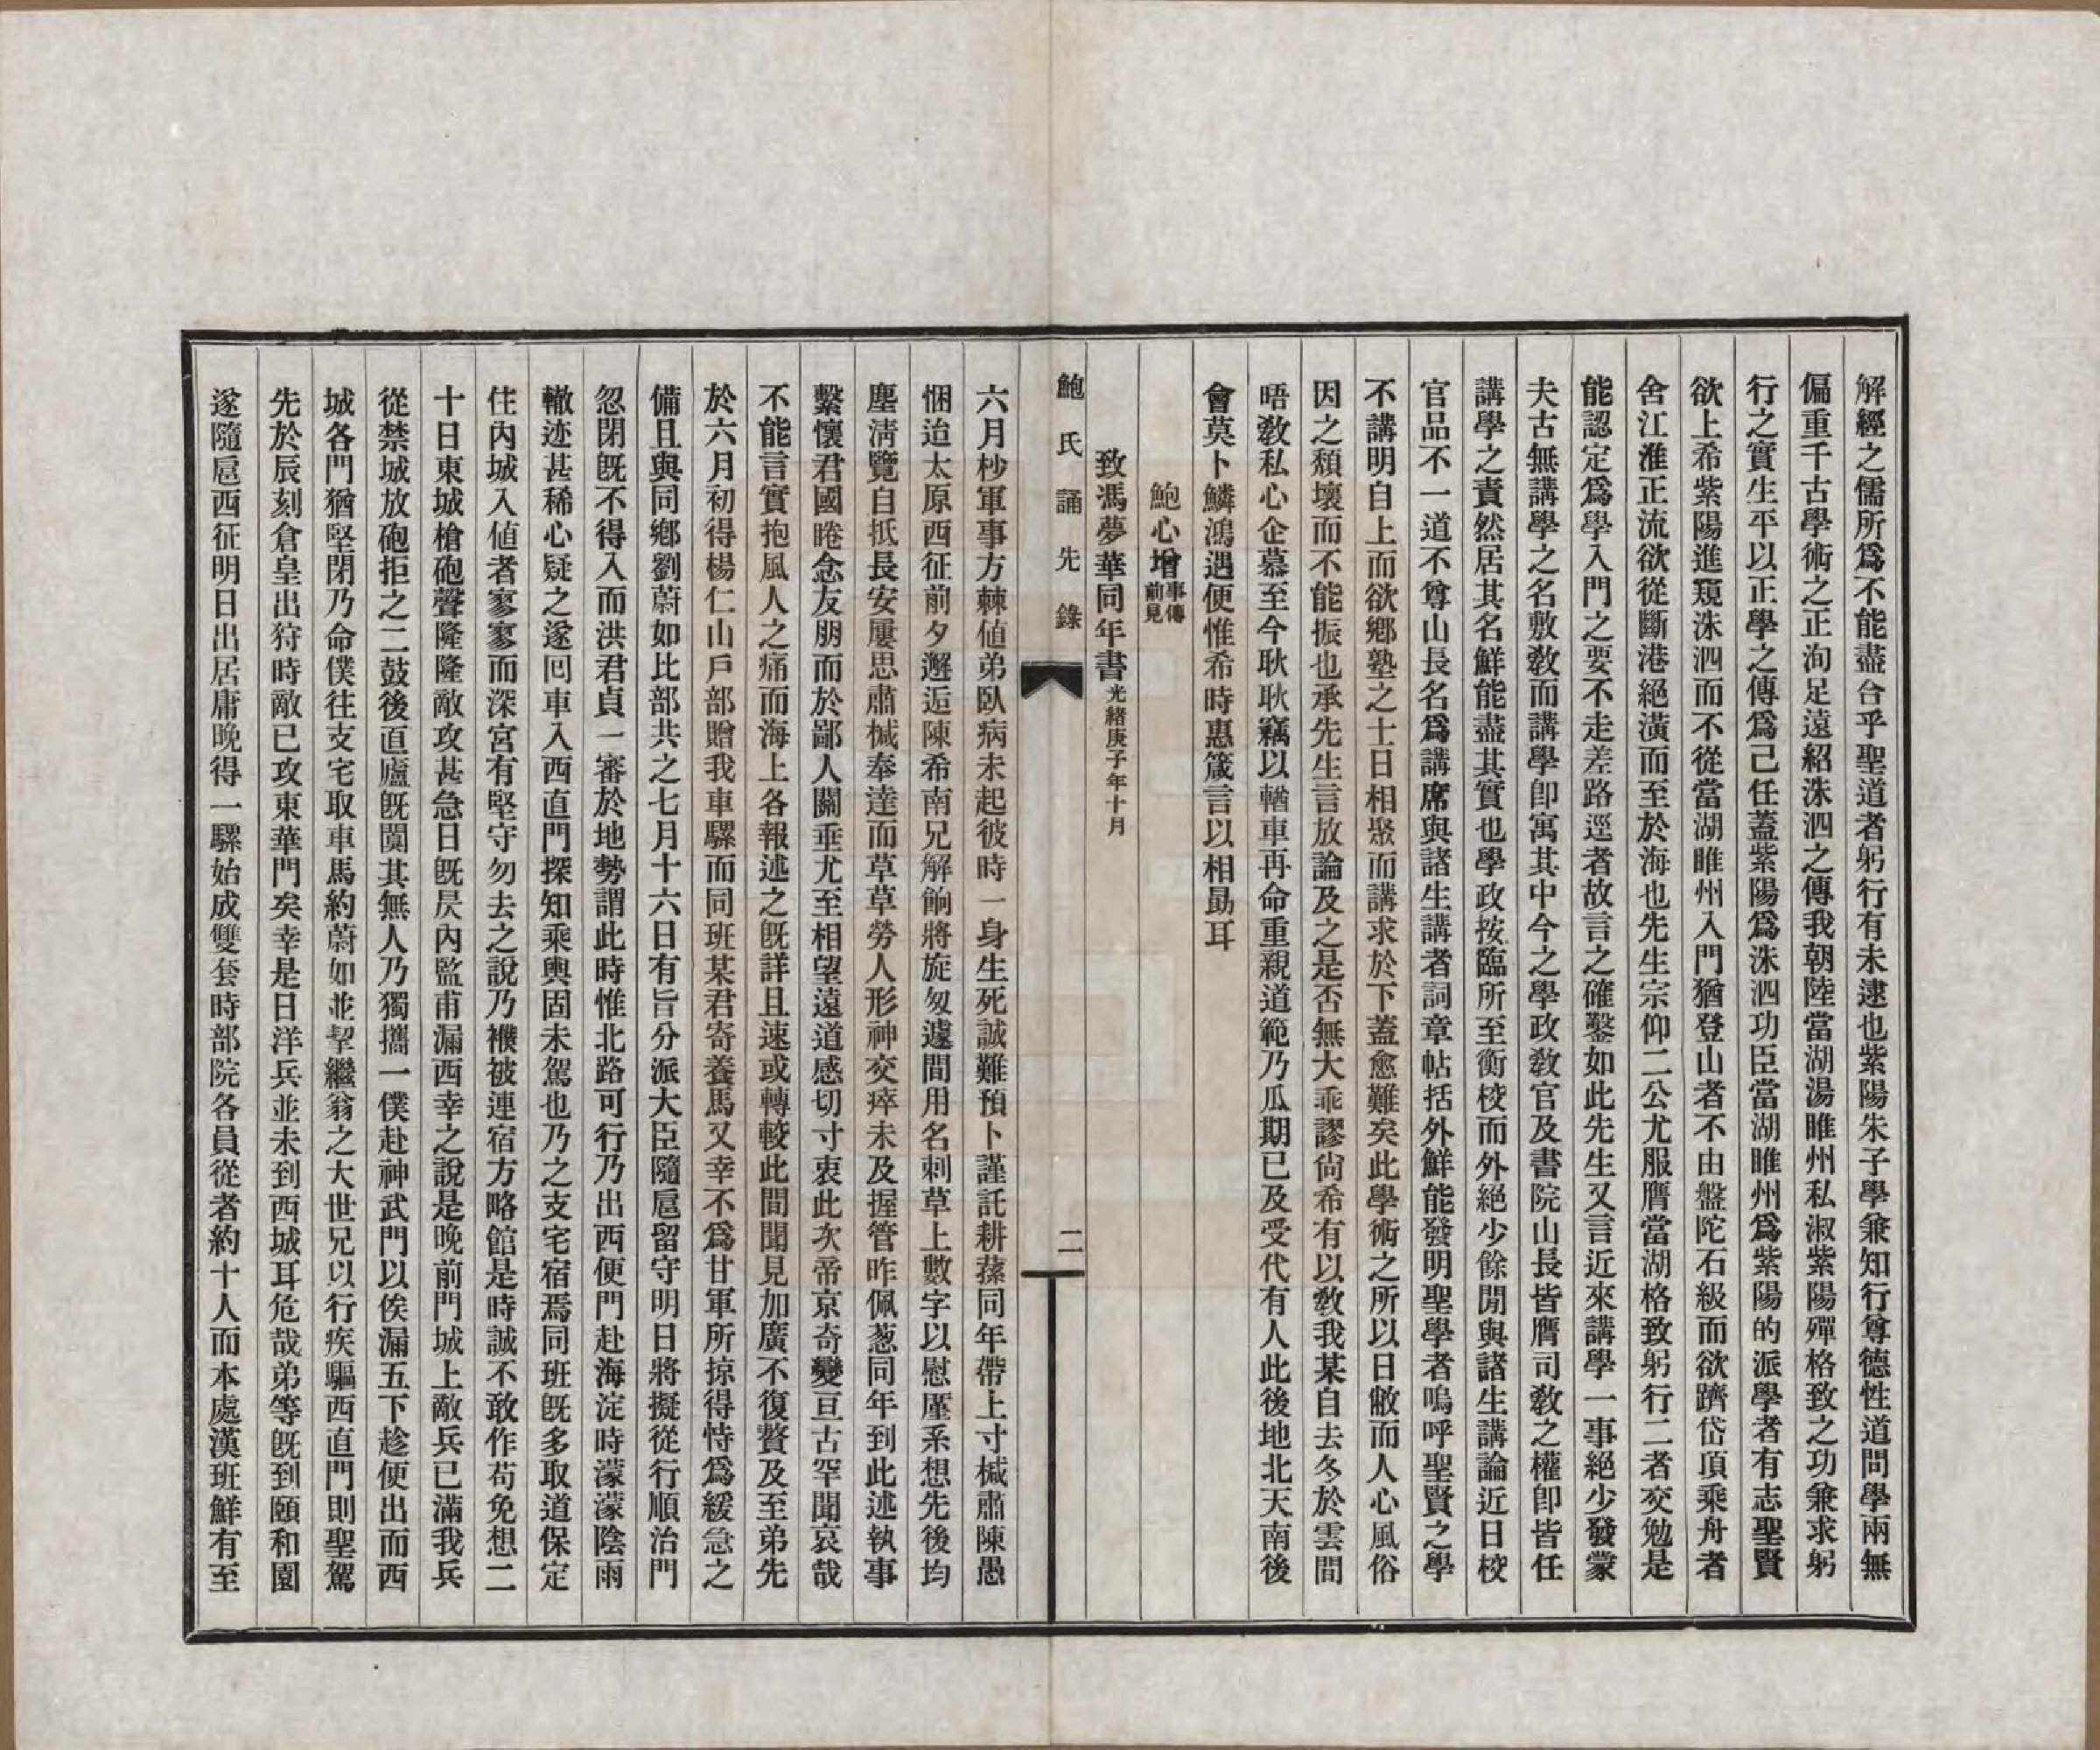 解經之儒所爲不能盡合乎聖道者躬行有未逮也紫陽朱子學兼知行尊德性道問學兩無
偏重千古學術之正洵足遠紹洙泗之傳我朝陸當湖湯睢州私淑紫陽殫格致之功兼求躬
行之實生平以正學之傳爲己任蓋紫陽爲洙泗功臣當湖睢州爲紫陽的派學者有志聖賢
欲上希紫陽進窺洙泗而不從當湖睢州入門猶登山者不由盤陀石級而欲躋岱頂乘舟者
舍江淮正流欲從斷港絕潢而至於海也先生宗仰二公尤服膺當湖格致躬行二者交勉是
能認定爲學入門之要不走差路逕者故言之確鑿如此先生又言近來講學一事絕少發蒙
夫古無講學之名敷敎而講學卽寓其中今之學政敎官及書院山長皆膺司敎之權卽皆任
講學之責然居其名鮮能盡其實也學政按臨所至衡校而外絕少餘閒與諸生講論近日校
官品不一道不尊山長名爲講席與諸生講者詞章帖括外鮮能發明聖學者嗚呼聖賢之學
不講明自上而欲鄕塾之士日相聚而講求於下蓋愈難矣此學術之所以日敝而人心風俗
因之頹壞而不能振也承先生言放論及之是否無大乖謬尙希有以敎我某自去冬於雲間
晤敎私心企慕至今耿耿竊以輶車再命重親道範乃瓜期已及受代有人此後地北天南後
會莫卜鱗鴻遇便惟希時惠箴言以相勗耳
鮑心增事傳前見
致馮夢華同年書光緒庚子年十月
鮑氏誦先錄
二
六月杪軍事方棘値弟臥病未起彼時一身生死誠難預卜謹託耕蓀同年帶上寸椷肅陳愚
悃迨太原西征前夕邂逅陳希南兄解餉將旋匆遽間用名刺草上數字以慰廑系想先後均
塵淸覽自抵長安屢思肅椷奉達而草草勞人形神交瘁未及握管昨佩蔥同年到此述執事
繫懷君國睠念友朋而於鄙人關垂尤至相望遠道感切寸衷此次帝京奇變亘古罕聞哀哉
不能言實抱風人之痛而海上各報述之旣詳且速或轉較此間聞見加廣不復贅及至弟先
於六月初得楊仁山戶部贈我車騾而同班某君寄養馬又幸不爲甘軍所掠得恃爲緩急之
備且與同鄕劉蔚如比部共之七月十六日有旨分派大臣隨扈留守明日將擬從行順治門
忽閉旣不得入而洪君貞一審於地勢謂此時惟北路可行乃出西便門赴海淀時濛濛陰雨
轍迹甚稀心疑之遂囘車入西直門探知乘輿固未駕也乃之支宅宿焉同班旣多取道保定
住內城入値者寥寥而深宮有堅守勿去之說乃襆被連宿方略館是時誠不敢作苟免想二
十日東城槍砲聲隆隆敵攻甚急日旣昃內監甫漏西幸之說是晚前門城上敵兵已滿我兵
從禁城放砲拒之二鼓後直廬旣闃其無人乃獨攜一僕赴神武門以俟漏五下趁便出而西
城各門猶堅閉乃命僕往支宅取車馬約蔚如並挈繼翁之大世兄以行疾驅西直門則聖駕
先於辰刻倉皇出狩時敵已攻東華門矣幸是日洋兵並未到西城耳危哉弟等旣到頤和園
遂隨扈西征明日出居庸晚得一騾始成雙套時部院各員從者約十人而本處漢班鮮有至